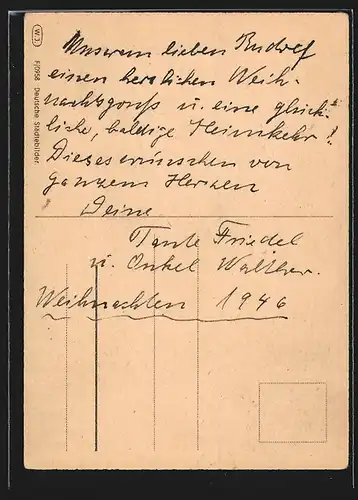 Unserem lieben Rudolf
einen herzlichen Weih-
nachtsgruß u. eine glück-
liche, baldige Heimkehr!!
Dieses wünschen von
ganzem Herzen
Deine
Tante Friedel
u. Onkel Walther.
Weihnachten 1946
W.J.
F/0958 Deutsche Städtebilder.